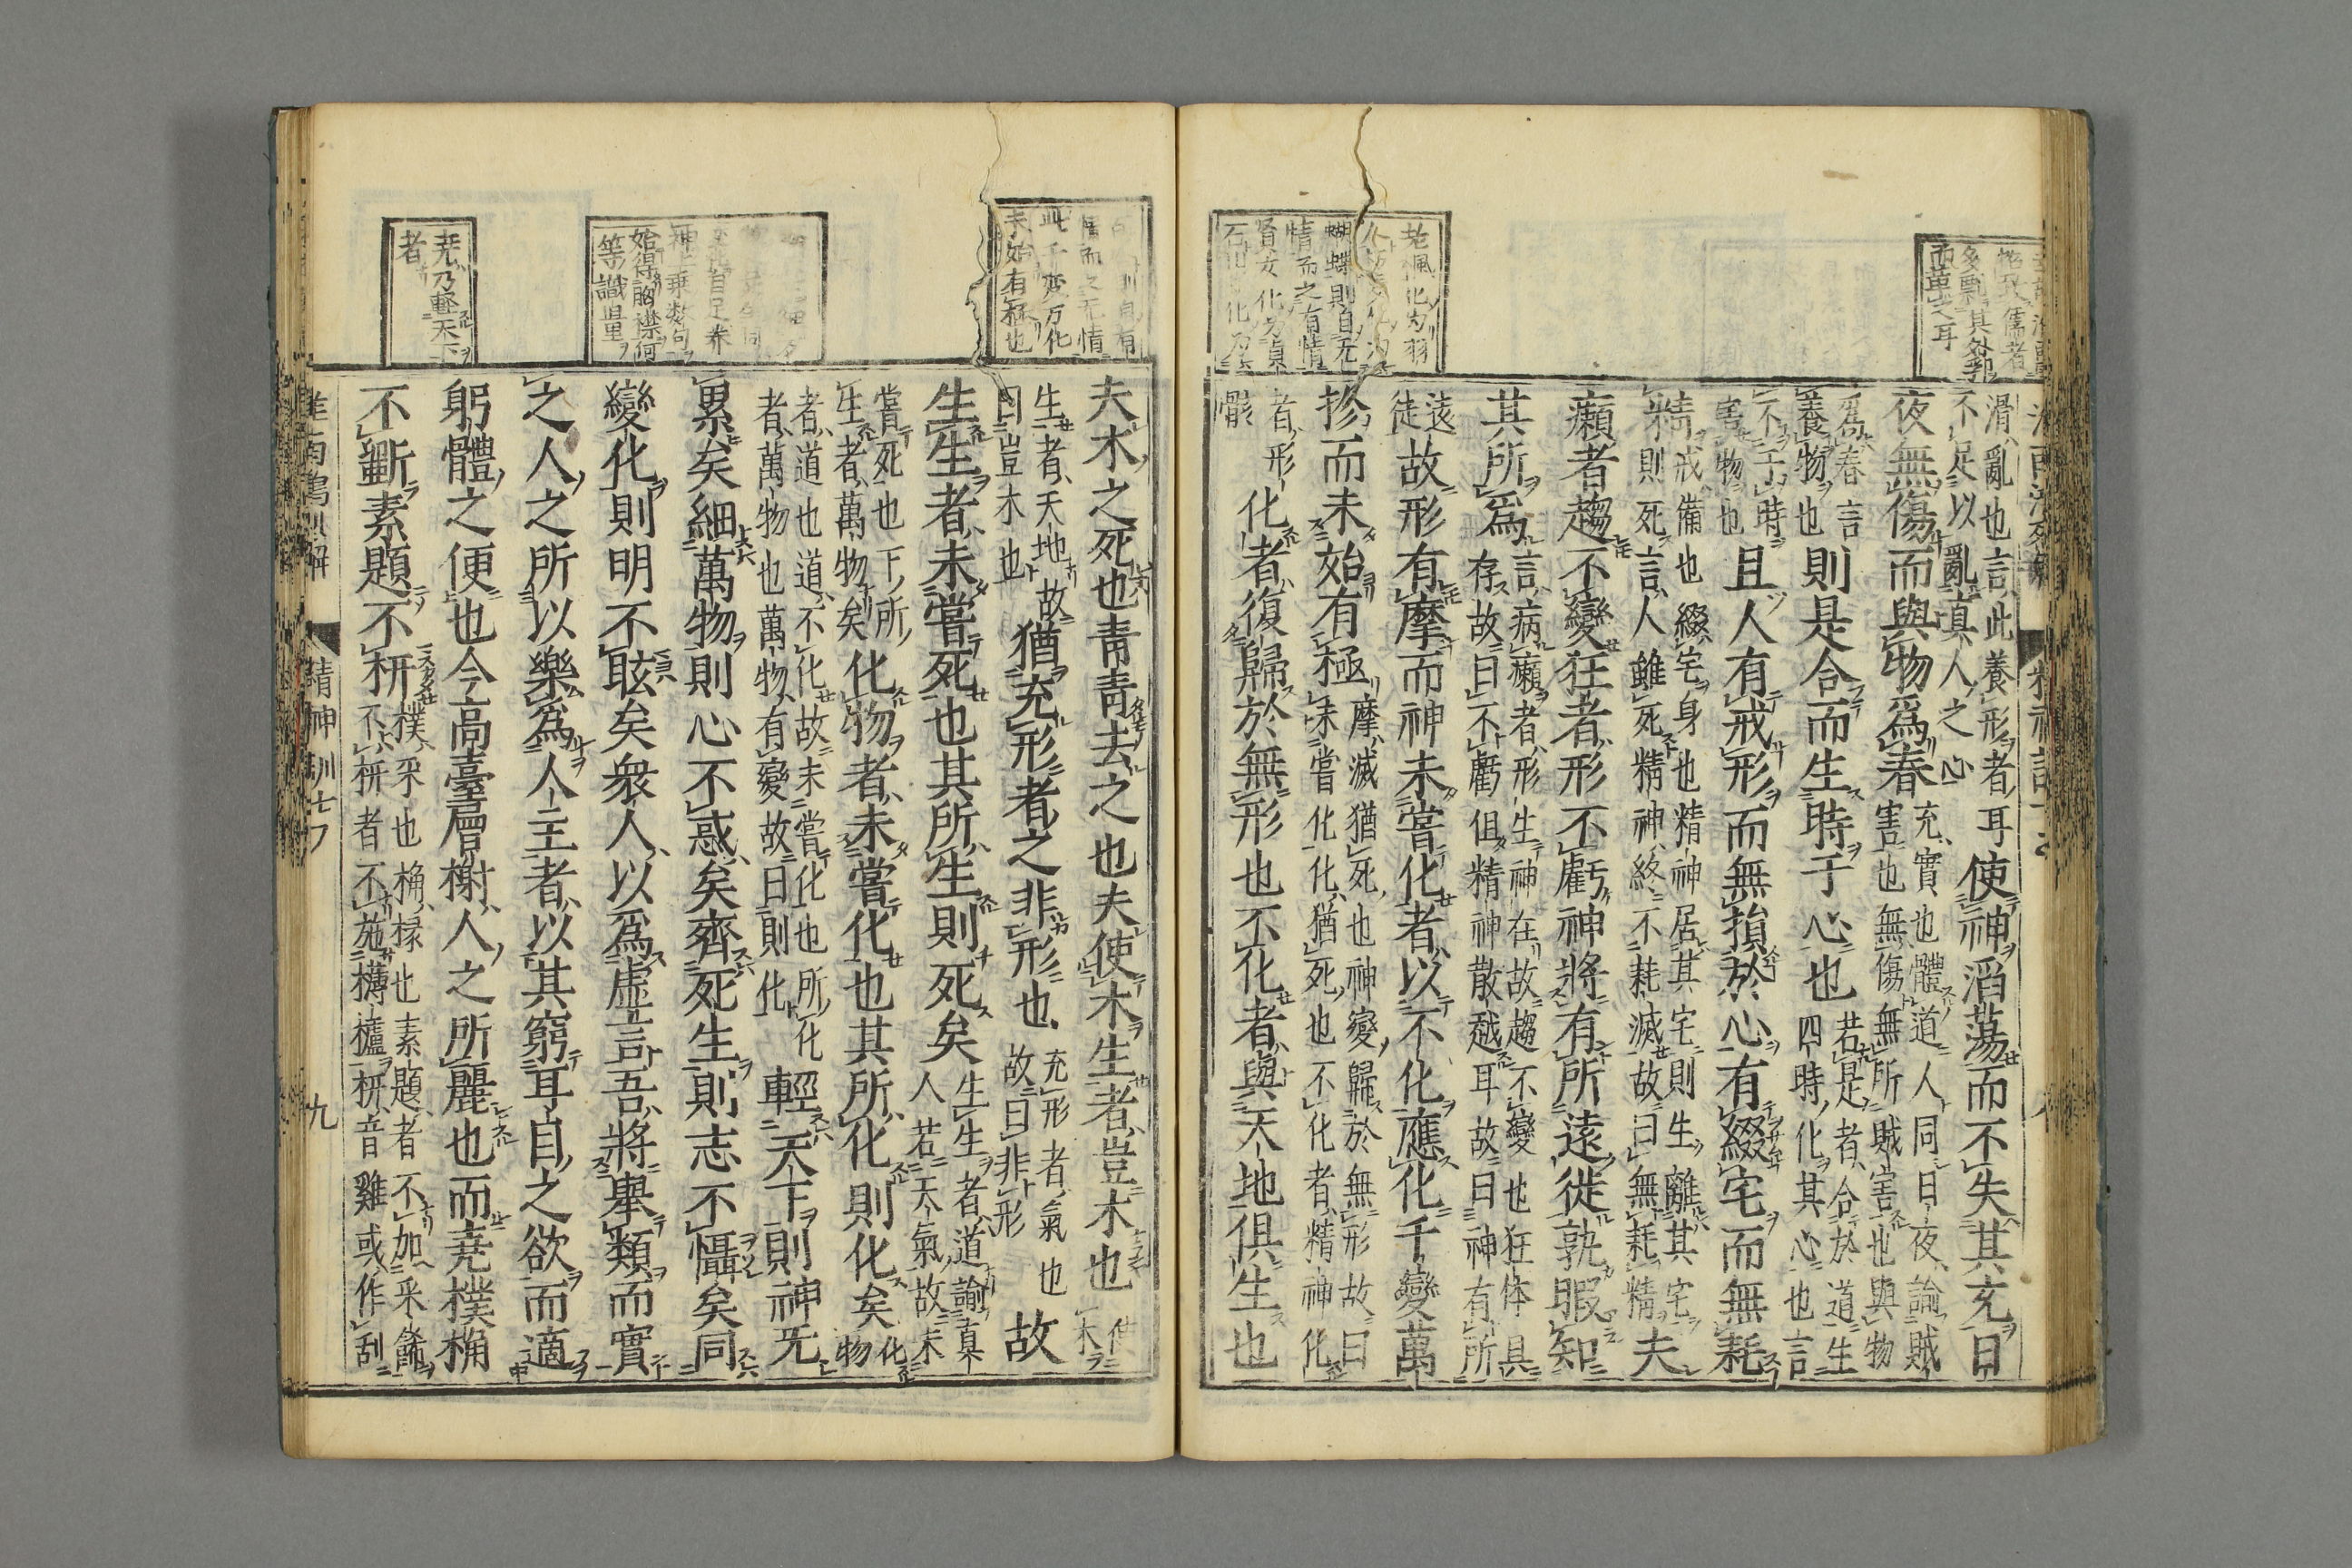 滑亂也言此養形者耳
不足以亂真人之心
使神滔蕩而不失其充日
夜無傷而與物爲春
充實也體道人同日夜論賊
害也無傷無所賊害也與物
爲春言
養物也
則是合而生時于心也
若是者合於道生
四時化其心也言
不干時
害物也
且人有戒形而無損於心有綴宅而無耗
精戒備也綴宅身也精神居其宅則生離其宅
則死言人雖死精神終不耗減故曰無耗精
夫
癩者趨不變狂者形不虧神將有所遠徙孰暇知
其所爲
言病癩者形生神在故趨不變也狂体具
存故曰不虧但精神散越耳故曰神有所
遠
徙
故形有摩而神未嘗化者以不化應化千變萬
抮而未始有極
摩滅猶死也神變歸於無形故曰
未嘗化化猶死也不化者精神化
者形
骸
化者復歸於無形也不化者與天地俱生也
夫木之死也青青去之也夫使木生者豈木也
使
木
生者天地故
曰豈木也
猶充形者之非形也
充形者氣也
故曰非形
故
生生者未嘗死也其所生則死矣
生生者道諭真
人若天氣故未
嘗死也下所
生者萬物矣
化物者未嘗化也其所化則化矣
化
物
者道也道不化故未嘗化也所化
者萬物也萬物有變故曰則化
輕天下則神无
累矣細萬物則心不惑矣齊死生則志不懾矣同
變化則明不眩矣衆人以爲虛言吾將舉類而實
之人之所以樂爲人主者以其窮耳自之欲而適
躬體之便也今高臺層榭人之所麗也而堯樸桷
不斲素題不枅
樸采也桷椽也素題者不加采飾
不枅者不施欂櫨枅音雞或作刮
精神訓七
九
老楓化为羽
蝴蝶則自无
情而之有情
賢女化为貞
此千変万化
未始有極也
神上乗数句
始得胸襟何
等識量
尭乃軽天下
者